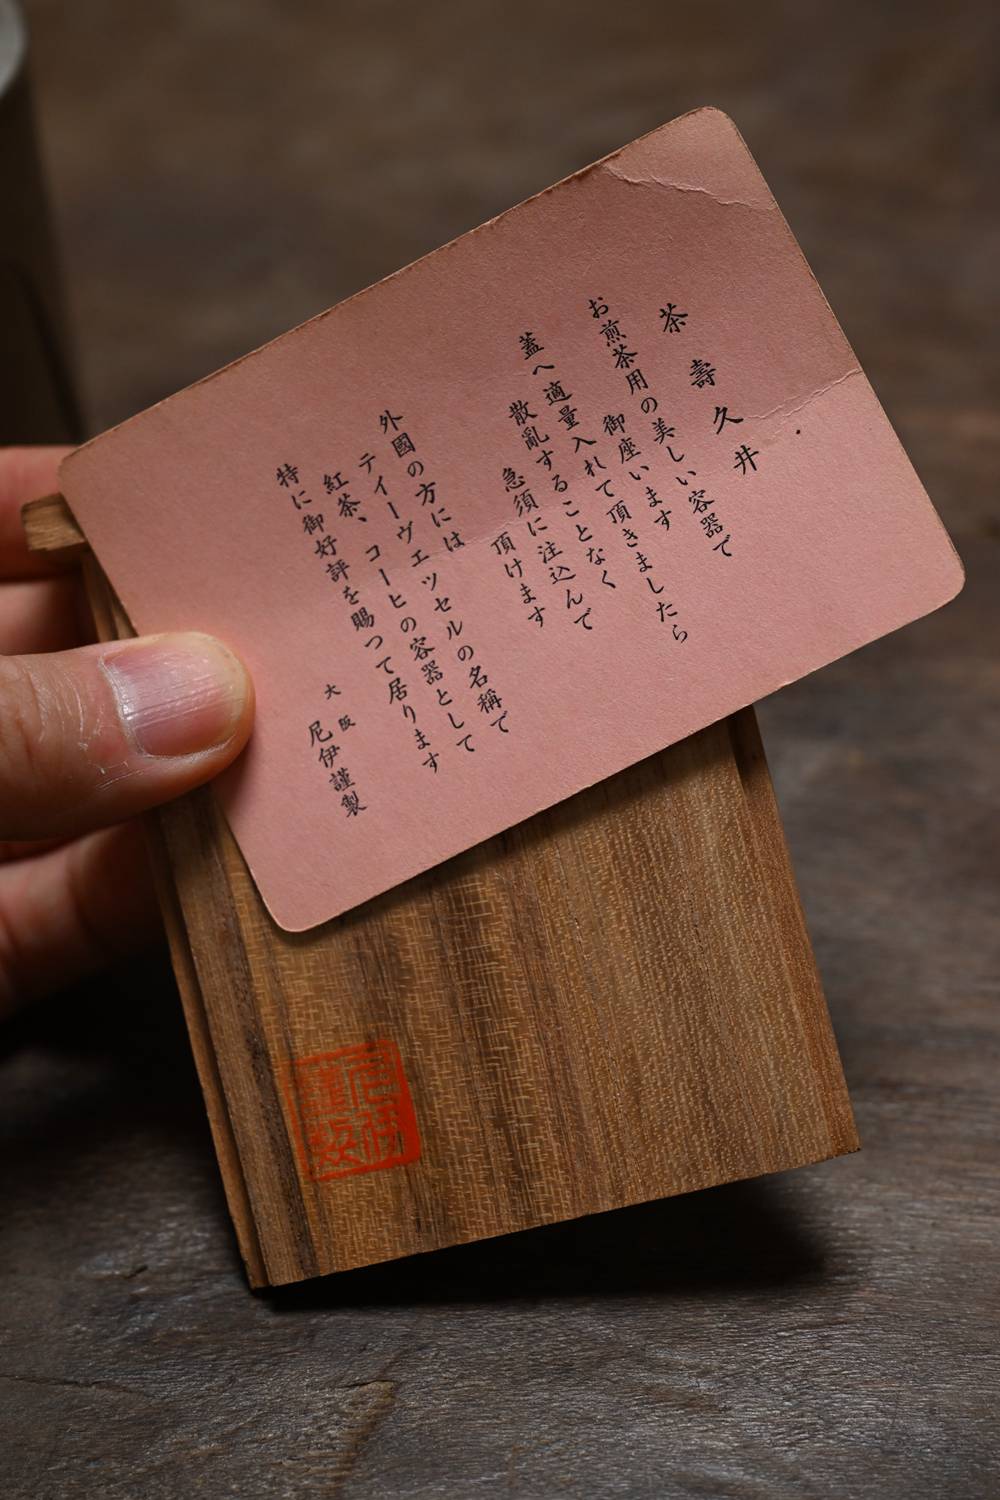 茶壽久井
お煎茶用の美しい容器で
御座います
蓋へ適量入れて頂きましたら
散亂することなく
急須に注込んで
頂けます
外國の方には
ティーヴェッセルの名稱で
紅茶、コーヒの容器として
特に御好評を賜つて居ります
大阪
尼伊謹製
尼伊
謹製